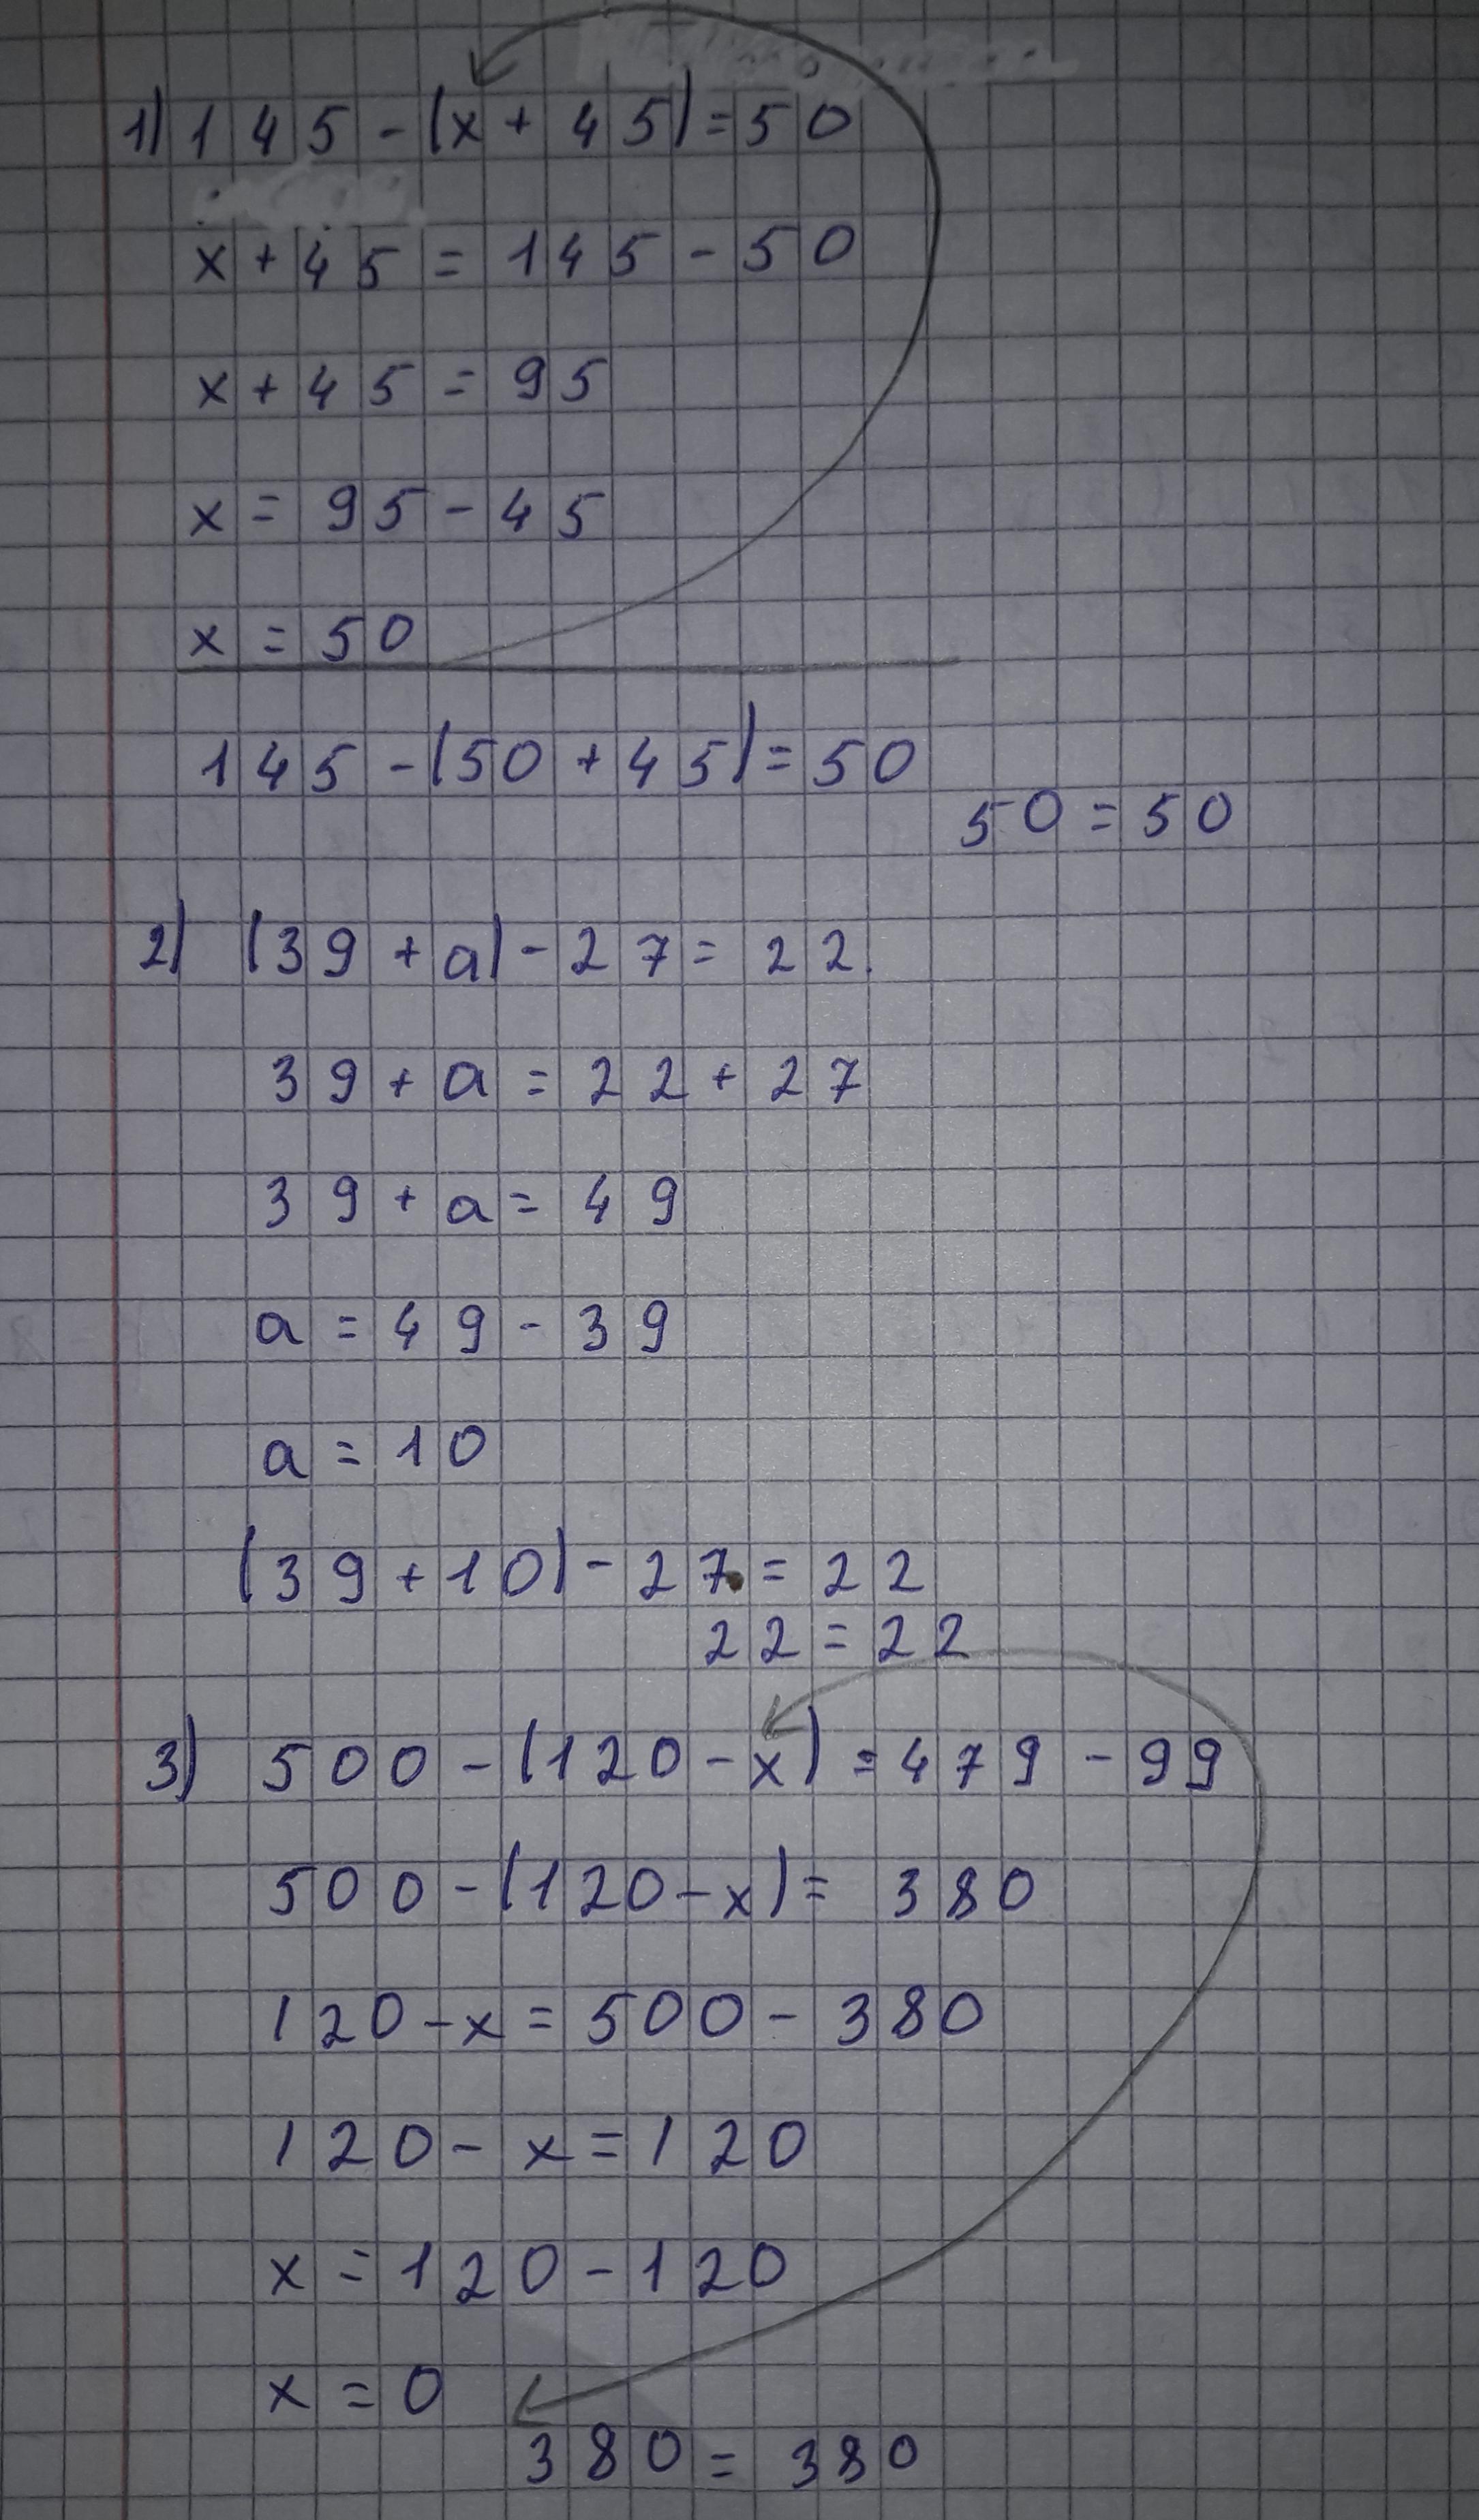 1) 145 - (x + 45) = 50
x + 45 = 145 - 50
x + 45 = 95
x = 95 - 45
x = 50
145 - (50 + 45) = 50
50 = 50
2) (39 + a) - 27 = 22
39 + a = 22 + 27
39 + a = 49
a = 49 - 39
a = 10
(39 + 10) - 27 = 22
22 = 22
3) 500 - (120 - x) = 479 - 99
500 - (120 - x) = 380
120 - x = 500 - 380
120 - x = 120
x = 120 - 120
x = 0
380 = 380